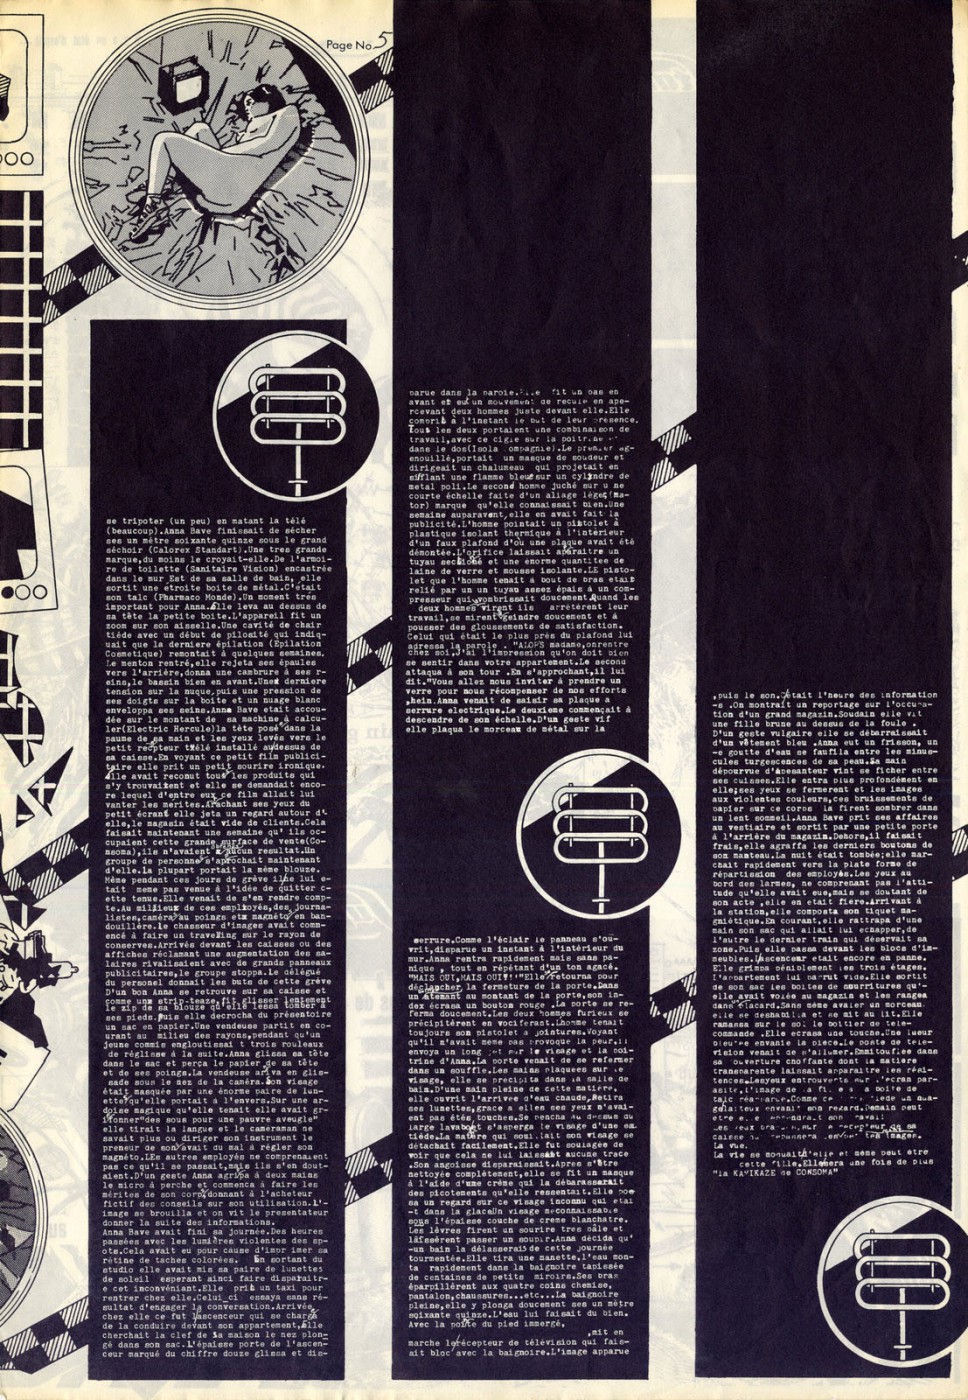 Page No 5
se tripoter (un peu) en matant la télé
(beaucoup).Anna Bave finissait de sécher
ses un métre soixante quinze sous le grand
séchoir (Calorex Standart).Une tres grande
marque,du moins le croyait-elle.De l'armoi-
re de toilette (Sanitaire Vision) encastrée
dans le mur Est de sa salle de bain, elle
sortit une étroite boite de métal.C'était
son talc (Pharmaco Monde).Un moment trés
important pour Anna.Elle leva au dessus de
sa tête la petite boite.L'appareil fit un
zoom sur son aisselle.Une cavité de chair
tiéde avec un début de pilosité qui indiq-
uait que la derniere épilation (Epilation
Cosmetique) remontait à quelques semaines.
Le menton rentré,elle rejeta ses épaules
vers l'arriére,donna une cambrure à ses r-
eins,le bassin bien en avant.Une derniere
tension sur la nuque,puis une pression de
ses doigts sur la boite et un nuage blanc
enveloppa ses seins.Anna Bave était accou-
dée sur le montant de sa machine à calcu-
ler(Electric Hercule)la tête posé dans la
paume de sa main et les yeux levés vers le
petit recpteur télé installé audessus de
sa caisse.En voyant ce petit film publici-
taire elle prit un petit sourire ironique.
Elle avait reconut tous les produits qui
s'y trouvaient et elle se demandait enco-
re lequel d'entre eux ce film allait lui
vanter les merites.Arachant ses yeux du
petit écran elle jeta un regard autour d'
elle,le magasin était vide de clients.Cela
faisait maintenant une semaine qu' ils oc-
cupaient cette grande surface de vente(Co-
nsoma),ils n'avaient aucun resultat.Un
groupe de personne s'aprochait maintenant
d'elle.La plupart portait la même blouse.
Même pendant ces jours de grève il ne lui e-
tait meme pas venue à l'idée de quitter c-
ette tenue.Elle venait de s'en rendre comp-
te.Au millieux de ces employés,des journa-
listes,caméra au poings etx magnéto en ban-
douillère.Le chasseur d'images avait comm-
encé à faire un traveling sur le rayon de
conserves.Arrivés devant les caisses ou des
affiches réclamant une augmentation des sa-
laires rivalisient avec de grands panneaux
publicitaires,le groupe stoppa.Le délégué
du personel donnait les buts de cette grève
D'un bon Anna se retrouve sur sa caisse et
comme une strip-teaze,fit glisser lentement
le zip de sa blouse qu'elle lessa tomber à
ses pieds.Puis elle decrocha du présentoire
un sac en papier.Une vendeuse partit en co-
urant au milieu des rayons,pendant qu'un
jeune commis engloutissait trois rouleaux
de réglisse à la suite.Anna glissa sa tête
dans le sac et perça le papier de sa tête
et de ses poings.La vendeuse arriva en glis-
sade sous le nez de la caméra.Son visage
était masquée par une énorme paire de lun-
ette qu'elle portait à l'envers.Sur une ar-
doise magique qu'elle tenait elle avait gr-
ifonner"des sous pour une pauvre aveugle"
elle tirait la langue et le cameraman ne
savait plus ou diriger son instrument le
preneur de son avait du mal à régler son
magnéto.LEs autres employés ne comprenaient
pas ce qu'il se passait,mais ils s'en dout-
aient.D'un geste Anna agrippa à deux mains
le micro à perche et commenca à faire les
mérites de son corps,donnant à l'acheteur
fictif des conseils sur son utilisation.L'-
image se brouilla et on vit le presentateur
donner la suite des informations.
Anna Bave avait fini sa journée.Des heures
passées avec les lumières violentes des sp-
ots.Cela avait eu pour cause d'imprimer sa
rétine de taches colorées. En sortant du
studio elle avait mis sa paire de lunettes
de soleil esperant ainci faire disparaitr-
e cet inconvéniant.Elle prit un taxi pour
rentrer chez elle.Celui_ci essaya sans ré-
sultat d'engager la conversation.Arrivée
chez elle ce fut l'ascenceur qui se chargа
de la conduire devant son appartement,elle
cherchait la clef de la maison le nez plon-
gé dans son sac.L'épaisse porte de l'ascen-
ceur marqué du chiffre douze glissa et dis-
parue dans la paroie.Elle fit un pas en
avant et eut un mouvement de recule en ape-
rcevant deux hommes juste devant elle.Elle
comprit à l'instant le but de leur présence.
Tout les deux portaient une combinaison de
travail,avec ce cigle sur la poitrine
dans le dos(Isola ompagnie).Le premier ag-
enouillé,portait un masque de soudeur et
dirigeait un chalumeau qui projetait en
sifflant une flamme bleu sur un cylindre de
metal poli.Le second homme juché sur u ne
courte échelle faite d'un aliage léger(Ma-
tor) marque qu'elle connaissait bien.Une
semaine auparavent,elle en avait fait la
publicité.L'homme pointait un pistolet à
plastique isolant thermique à l'intérieur
d'un faux plafond d'où une plaque avait été
démontée.L'orifice laissait aparaitre un
tuyau sectioné et une énorme quantitee de
laine de verre et mousse isolante.LE pisto-
let que l'homme tenait à bout de bras etait
relié par un un tuyau assez épais à un com-
presseur qui vombrissait doucement.Quand les
deux hommes virent ils arrétèrent leur
travail,se mirent geindre doucement et à
pousser des gloussements de satisfaction.
Celui qui était le plus près du plafond lui
adressa la parole . "ALORS madame,onrentre
chez soi,J'ai l'impression qu'on doit bien
se sentir dans votre appartement.Le second
attaqua à son tour .En s'approchant,il lui
dit."Vous allez nous inviter à prendre un
verre pour nous récompenser de nos efforts
,hein.Anna venait de saisir sa plaque a
serrure electrique.Le deuxieme commençait à
descendre de son échelle.D'un geste vif
elle plaqua le morceau de métal sur la
serrure.Comme l'éclair le panneau s'ou-
vrit,disparue un instant à l'intérieur du
mur.Anna rentra rapidement mais sans pa-
nique , tout en répétant d'un ton agacé.
"MAIS OUI,MAIS OUI!!"Elle retourna pour
déclancher la fermeture de la porte.Dans
un élément au montant de la porte,son in-
dex écrasa un bouton rouge .La porte se re-
ferma doucement.Les deux hommes furieux se
précipitèrent en vociferant.Lhomme tenait
toujours son pistolet a jointures.Voyant
qu'il n'avait meme pas provoque la peur,il
envoya un long jet sur le visage et la poi-
trine d'Anna.La porte venait de se refermer
dans un souffle.Les mains plaquees sur le
visage, elle se precipita dans la salle de
bain.D'une main pleine de cette matière,
elle ouvrit l'arrivee d'eau chaude,Retira
ses lunettes,grace a elles ses yeux n'avai-
ent pas étés touches.Se pencha au dessus du
large lavabo et s'asperga le visage d'une ea
tiéde.La matère qui souillait son visage se
détachait facilement.Elle fut soulagee de
voir que cela ne lui laissait aucune trace
.Son angoisse disparaissait.Apres s'être
nettoyée complètement,elle se fit un masque
à l'aide d'une crème qui la débarassarait
des picotements qu'elle ressentait.Elle po-
sa un regard sur ce visage inconnu qui etai
-t dans la glace.Un visage meconnaissable
sous l'épaisse couche de creme blanchatre.
Les lèvres firent un sourire tres pâle et
laissèrent passer un soupir.Anna décida qu'
-un bain la délasserais de cette journée
tourmentée.Elle tira une manette.l'eau mon-
ta rapidement dans la baignoire tapissée
de centaines de petits miroirs.Ses bras
éparpillèrent aux quatre coins chemise,
pantalon,chaussures...etc...La baignoire
pleine,elle y plongea doucement ses un mètre
soixante quinze.L'eau lui faisait du bien.
Avec la pointe du pied immergé,
,mit en
marche le récepteur de télévision qui fais-
ait bloc avec la baignoire.L'image apparue
,puis le son.C'était l'heure des information
-s .On montrait un reportage sur l'occupa-
tion d'un grand magazin.Soudain elle vit
une fille brune au dessus de la foule .
D'un geste vulgaire elle se débarraissait
d'un vêtement bleu .Anna eut un frisson, un
-e goutte d'eau se faufila entre les minus-
cules turgescences de sa peau.Sa main
dépourvue d'apesanteur vint se ficher entre
ses cuisses.Elle entra plus profondément en
elle;ses yeux se fermerent et les images
aux violentes couleurs,ces bruissements de
papier sur ce corps la firent sombrer dans
un lent sommeil.Anna Bave prit ses affaires
au vestiaire et sortit par une petite porte
à l'arrière du magazin.Dehors,il faisait
frais,elle agraffa les derniers boutons de
son manteau.La nuit était tombée;elle mar-
chait rapidement vers la plate forme de
répartission des employés.Les yeux au
bord des larmes, ne comprenant pas l'atti-
tude qu'elle avait eue,mais se doutant de
son acte ,elle en etait fiere.Arrivant à
la station,elle composta son tiquet ma-
gnétique.En courant,elle rattrapa d'une
main son sac qui allait lui echapper,de
l'autre le dernier train qui déservait sa
zone.Puis elle passa devant les blocs d'im-
meubles.L'ascenceur etait encore en panne.
Elle grimpa péniblement les trois étages.
l'appartement lui parut vide.Elle sortit
de son sac les boites de nourritures qu'-
elle avait volée au magasin et les rangea
dans placard.Sans même avaler un morceau
elle se deshabilla et se mit au lit.Elle
ramassa sur le sol le boitier de tele-
commande .Elle ecrasa une touche.Une lueur
bleutee envahie la piece.Le poste de tele-
vision venait de s'allumer.Emmitouflee dans
sa couverture chauffante dont la matiere
transparente laissait apparaitre les rési-
tences.Lesyeux entrouverts sur l'ecran par-
asite,l'image de la fi e a a boite de
talc reapparue.Comme ce remede un nua-
ge laiteux envahit son regard.Demain peut
etre elle reprendrait son travail
Les yeux braques sur le recepteur de sa
caisse repassera les tes images.
La vue.
La vie se moquait d'elle et même peut etre
cette fille.Elle sera une fois de plus
"la KAMIKAZE de CONSOMA"